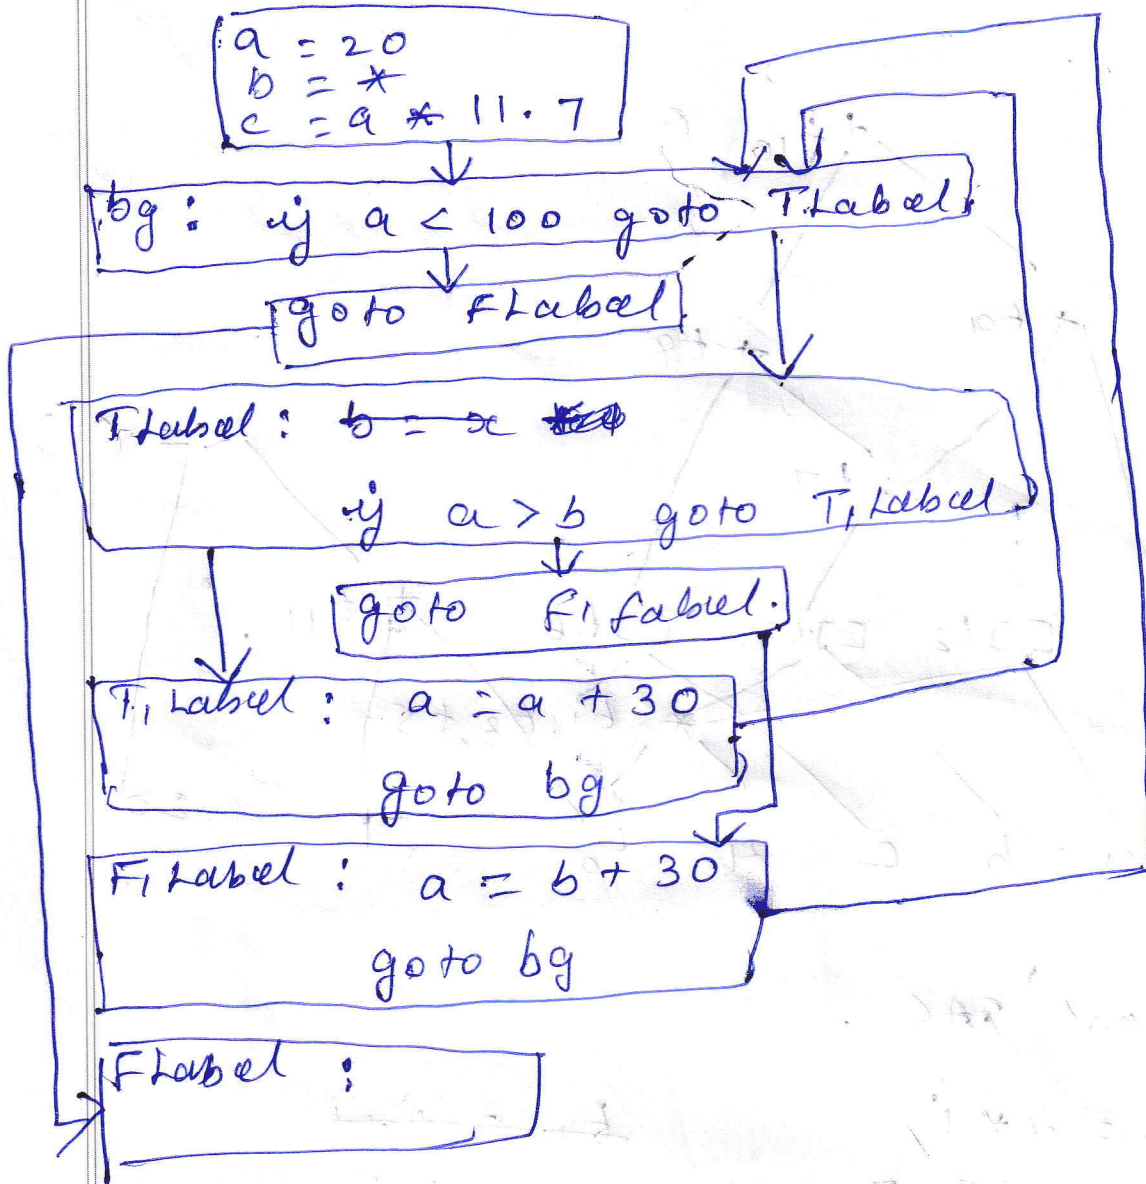 a = 20
b = *
c = a * 11.7
bg : if a < 100 goto TLabel
goto FLabel
TLabel : b = x
if a > b goto T1 Label
goto F1 Label.
T1 Label : a = a + 30
goto bg
F1 Label : a = b + 30
goto bg
FLabel :